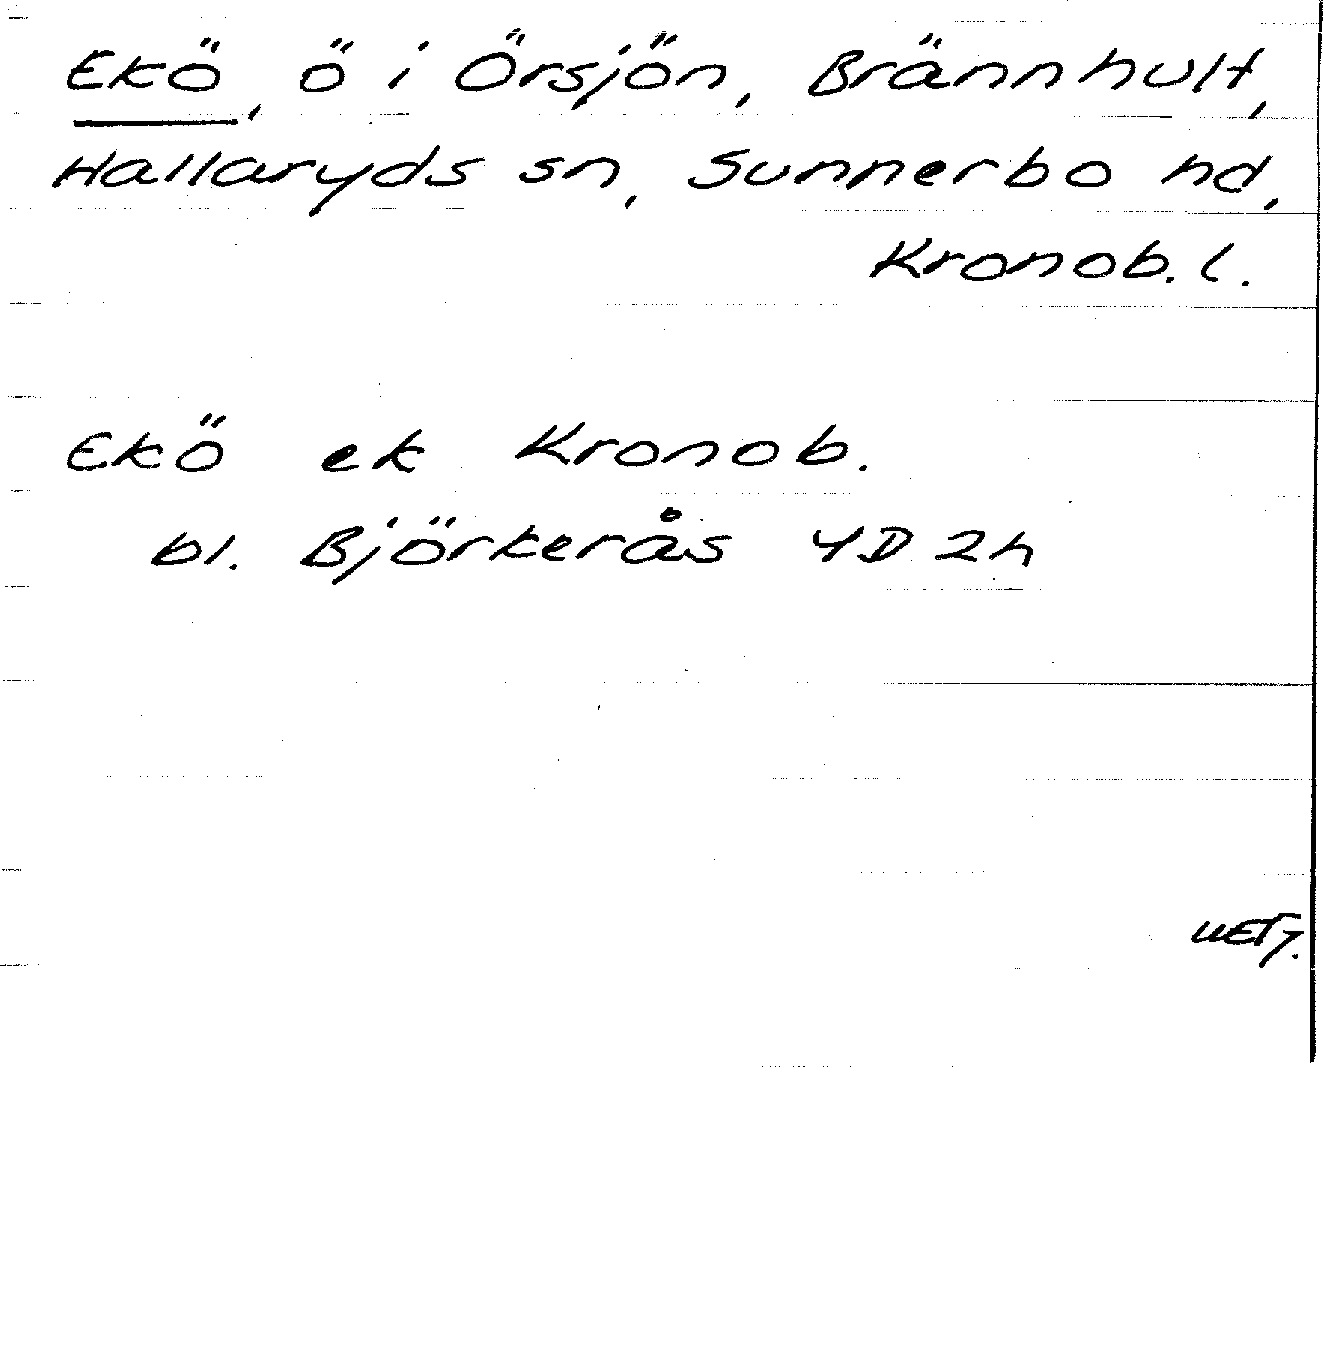 Ekö, ö i Örsjön, Brännhult,
Hallaryds sn, Sunnerbo hd,
Kronob. l.
Ekö ek Kronob.
bl. Björkerås 4D 2h